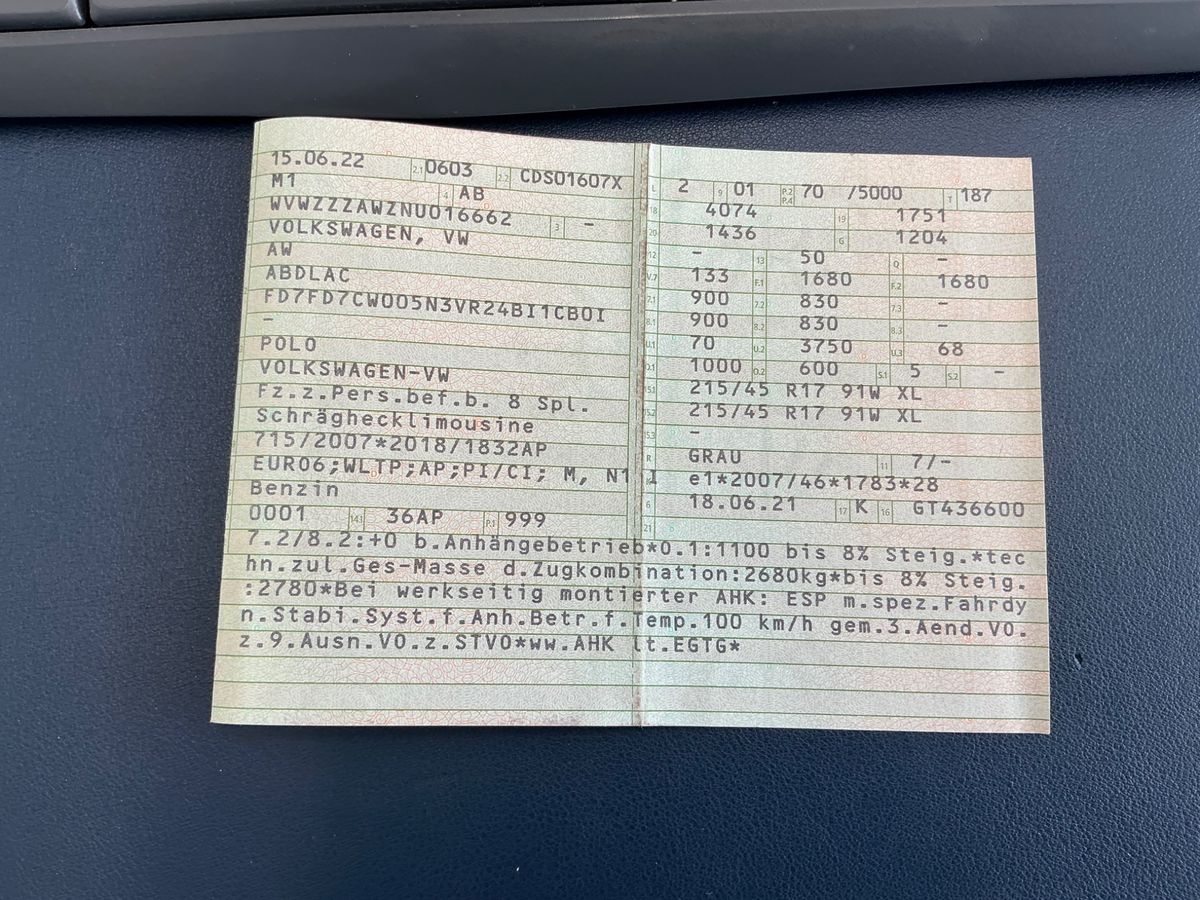 15.06.22 2.1 0603 2.2 CDS01607X
M1 4 AB
WVWZZZAWZNU016662 3 –
VOLKSWAGEN, VW
AW
ABDLAC
FD7FD7CW005N3VR24BI1CB0I
–
POLO
VOLKSWAGEN-VW
Fz.z.Pers.bef.b. 8 Spl.
Schräghecklimousine
715/2007*2018/1832AP
EURO6;WLTP;AP;PI/CI; M, N1 I
Benzin
0001 14.1 36AP P.1 999
L 2 9 01 P.2 P.4 70 /5000 T 187
18 4074 19 1751
20 1436 G 1204
12 – 13 50 Q –
V.7 133 F.1 1680 F.2 1680
7.1 900 7.2 830 7.3 –
8.1 900 8.2 830 8.3 –
U.1 70 U.2 3750 U.3 68
O.1 1000 O.2 600 S.1 5 S.2 –
15.1 215/45 R17 91W XL
15.2 215/45 R17 91W XL
15.3 –
R GRAU 11 7/–
K e1*2007/46*1783*28
6 18.06.21 17 K 16 GT436600
21
7.2/8.2:+0 b.Anhängebetrieb*0.1:1100 bis 8% Steig.*tec
hn.zul.Ges-Masse d.Zugkombination:2680kg*bis 8% Steig.
:2780*Bei werkseitig montierter AHK: ESP m.spez.Fahrdy
n.Stabi.Syst.f.Anh.Betr.f.Temp.100 km/h gem.3.Aend.VO.
z.9.Ausn.VO.z.STVO*ww.AHK lt.EGTG*